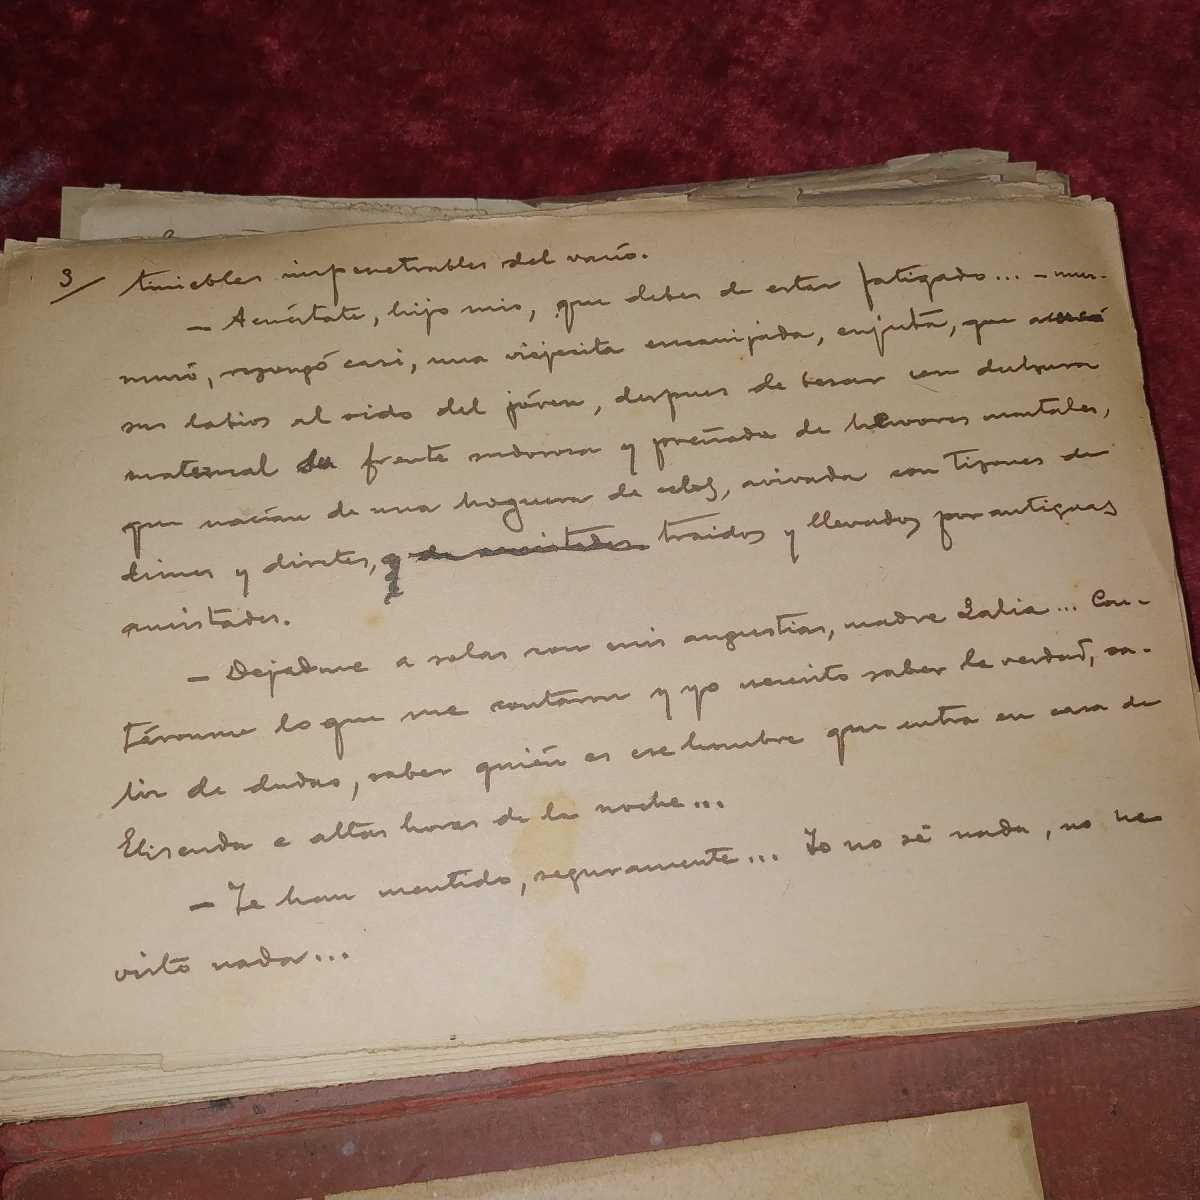 3/ tinieblas impenetrables del vacío.
— Acuéstate, hijo mio, que debes de estar fatigado... — mur-
muró, rezongó casi, una viejecita encanijada, enjuta, que
sus labios al oido del jóven, despues de besar con dulzura
maternal la frente sudorosa y preñada de hervores mentales,
que nacían de una hoguera de celos, avivada con tizones de
dimes y diretes, traidos y llevados por antiguas
amistades.
— Dejadme a solas con mis angustias, madre Lalia... Con-
téronme lo que me contaron y yo necesito saber la verdad, sa-
lir de dudas, saber quién es ese hombre que entra en casa de
Elisenda a altas horas de la noche...
— Te han mentido, seguramente... Yo no sé nada, no he
visto nada...